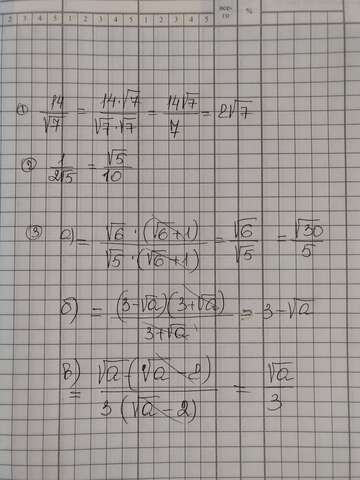 2 3 4 5 1 2 3 4 5 1 2 3 4 5 %
① 14/√7 = 14·√7/√7·√7 = 14√7/7 = 2√7
② 1/2√5 = √5/10
③ а) = √6·(√6+1)/√5·(√6+1) = √6/√5 = √30/5
б) = (3-√a)(3+√a)/3+√a = 3-√a
в) = √a(√a-2)/3(√a-2) = √a/3